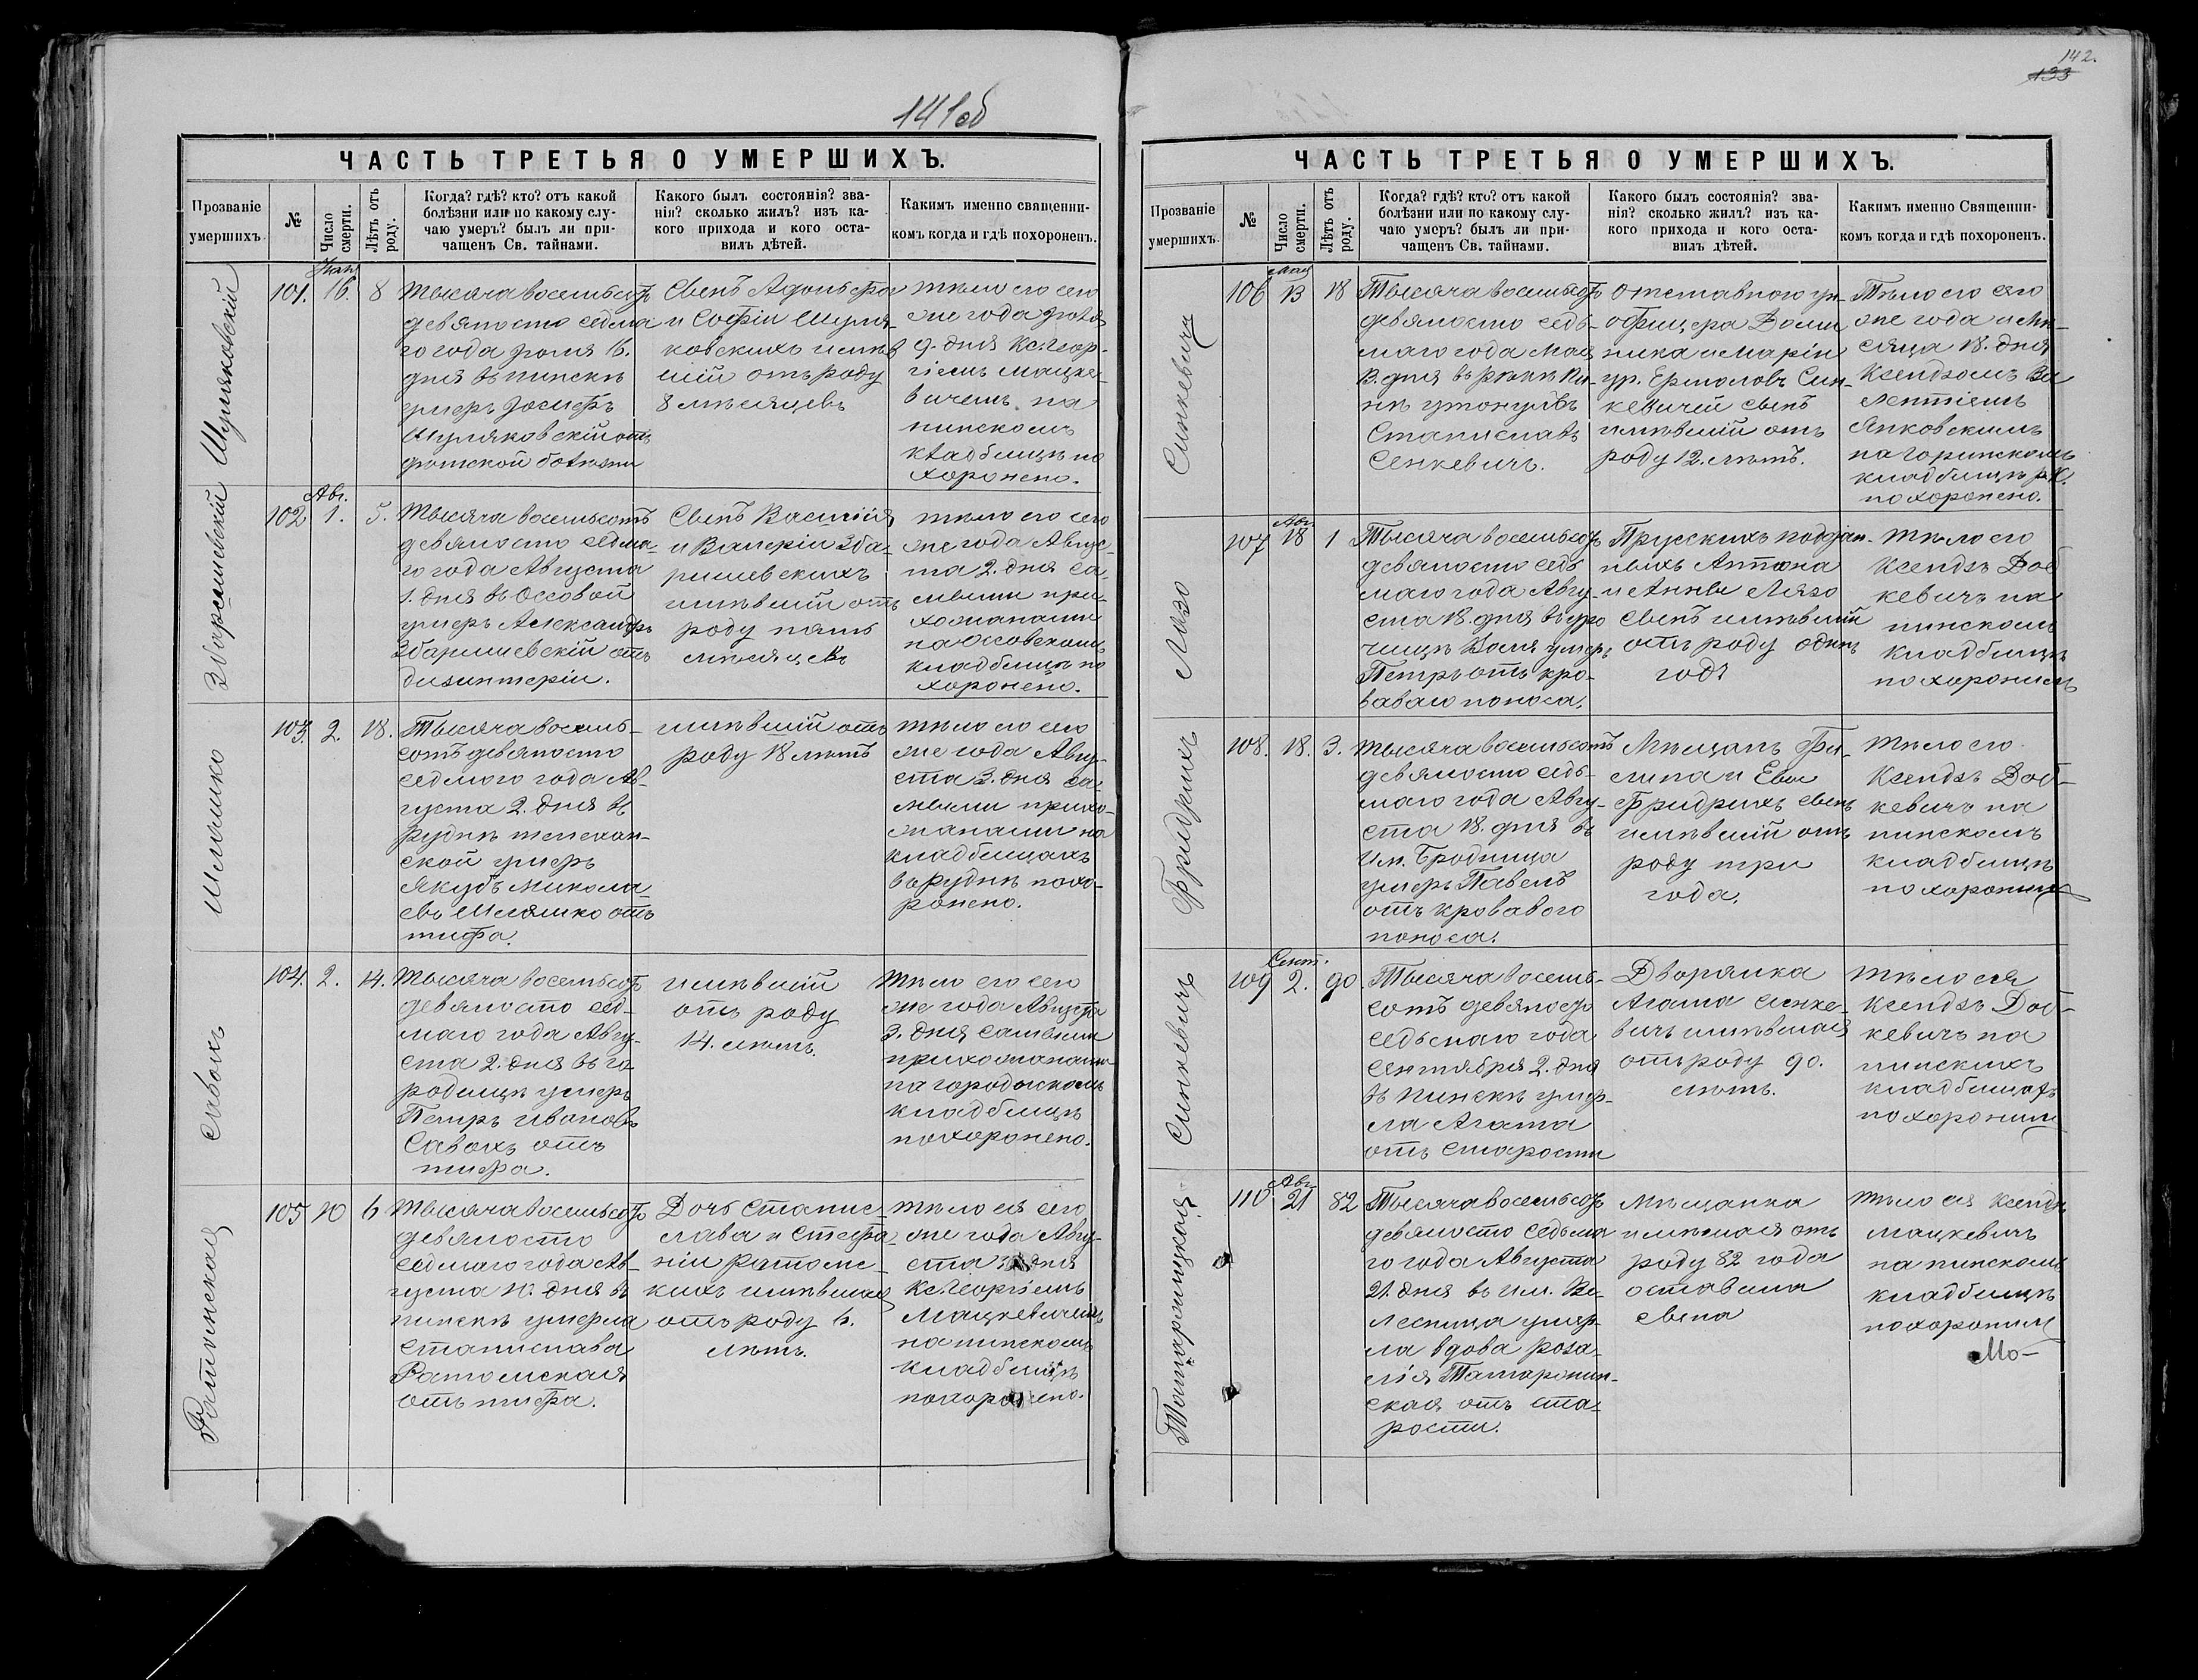 141об
ЧАСТЬ ТРЕТЬЯ О УМЕРШИХЪ.
Прозваніе умершихъ.
№
Число смерти.
Лѣтъ отъ роду.
Когда? гдѣ? кто? отъ какой
болѣзни или по какому слу-
чаю умеръ? былъ ли при-
чащенъ Св. тайнами.
Какого былъ состоянія? зва-
нія? сколько жилъ? изъ ка-
кого прихода и кого оста-
вилъ дѣтей.
Какимъ именно священни-
комъ когда и гдѣ похороненъ.
Шуляковскій
101. 16. 8
Тысяча восемьсотъ
девяносто седма
го года 16.
дня въ Пинскѣ
умеръ Іосифъ
Шуляковскій отъ
дѣтской болѣзни
Сынъ Адольфа
и Софіи Шуля-
ковскихъ имѣв
шій отъ роду
8 мѣсяцевъ
тѣло его сего
же года
9. дня Кс. Геор-
гіемъ Мацке-
вичемъ на
пинскомъ
кладбищѣ по
хоронено.
Збаришевскій
102 Авг. 1. 5.
Тысяча восемьсотъ
девяносто седма-
го года Августа
1. дня въ Оссовой
умеръ Александръ
Збаришевскій отъ
дизинтеріи.
Сынъ Василія
и Валеріи Зба-
ришевскихъ
имѣвшій отъ
роду пять
мѣсяцевъ
тѣло его сего
же года Авгус-
та 2. дня са-
мыми при-
хожанами
на Оссовскомъ
кладбищѣ по
хоронено.
Шеляшко
103. 2. 18.
Тысяча восемь-
сотъ девяносто
седмого года Ав-
густа 2. дня въ
Рудкѣ телехан-
ской умеръ
Якубъ Никола
евъ Шеляшко отъ
тифа.
имѣвшій отъ
роду 18 лѣтъ
тѣло его сего
же года Авгу-
ста 3. дня са-
мыми прихо-
жанами на
кладбищахъ
въ Рудкѣ похо-
ронено.
Савохъ
104. 2. 14.
Тысяча восемьсотъ
девяносто сед-
маго года Авгу-
ста 2. дня въ го-
родищѣ умеръ
Петръ Ивановъ
Савохъ отъ
тифа.
имѣвшій
отъ роду
14. лѣтъ.
тѣло его сего
же года Августа
3. дня самыми
прихожанами
на городискомъ
кладбищѣ
похоронено.
Ратомская
105 10 6
Тысяча восемьсотъ
девяносто
седмаго года Ав-
густа 10. дня въ
пинскѣ умерла
Станислава
Ратомская
отъ тифа.
Дочь Станис-
лава и Стефа-
ніи Ратомс-
кихъ имѣвшая
отъ роду 6.
лѣтъ.
тѣло ея сего
же года Авгу-
ста дня
Кс. Георгіемъ
Мацкевичемъ
на пинскомъ
кладбищѣ
похоронено.
142.
133
ЧАСТЬ ТРЕТЬЯ О УМЕРШИХЪ.
Прозваніе умершихъ.
№
Число смерти.
Лѣтъ отъ роду.
Когда? гдѣ? кто? отъ какой
болѣзни или по какому слу-
чаю умеръ? былъ ли при-
чащенъ Св. тайнами.
Какого былъ состоянія? зва-
нія? сколько жилъ? изъ ка-
кого прихода и кого оста-
вилъ дѣтей.
Какимъ именно Священни-
комъ когда и гдѣ похороненъ.
Синкевичъ
106 Мая 13 18
Тысяча восемьсотъ
девяносто седь-
маго года Мая
13. дня въ рѣкѣ Пи-
нѣ утонулъ
Станиславъ
Сенкевичъ.
отставного ун-
офицера Доми
ника и Маріи
ур. Ермоловъ Син-
кевичей сынъ
имѣвшій отъ
роду 12. лѣтъ.
Тѣло его сего
же года и мѣ-
сяца 18. дня
Ксендзомъ Ва
лентіемъ
Янковскимъ
на горинскомъ
кладбищѣ р. К.
похоронено.
Лязо
107 Авг. 18 1
Тысяча восемьсотъ
девяносто седь
маго года Авгу-
ста 18. дня въ уро
чищѣ Валя умеръ
Петръ отъ кро-
ваваго поноса.
Прусскихъ поддан-
ныхъ Антона
и Анны Лязо
сынъ имѣвшій
отъ роду одинъ
годъ
тѣло его
Ксендзъ Доб
кевичъ на
пинскомъ
кладбищѣ
похоронилъ
Фридрихъ
108. 18. 3.
Тысяча восемьсотъ
девяносто седь-
маго года Авгу-
ста 18. дня въ
Им. Бродница
умеръ Павелъ
отъ кровавого
поноса.
Мѣщанъ Фи-
липа и Евы
Фридрихъ сынъ
имѣвшій отъ
роду три
года.
Тѣло его
Ксендзъ Доб-
кевичъ на
пинскомъ
кладбищѣ
похоронилъ
Синкевичъ
109 Сент. 2. 90
Тысяча восемь-
сотъ девяносто
седьмаго года
Сентября 2. дня
въ Пинскѣ умер-
ла Агата
отъ старости
Дворянка
Агата Синке-
вичъ имѣвшая
отъ роду 90.
лѣтъ.
тѣло ея
Ксендзъ Доб-
кевичъ на
пинскихъ
кладбищахъ
похоронилъ
110 Авг. 21 82
Тысяча восемьсотъ
девяносто седьма
го года Августа
21. дня въ им. Ве-
лесница умер-
ла вдова Роза-
лія Татаронин-
ская отъ ста-
рости.
Мѣщанка
имѣвшая отъ
роду 82 года
оставила
сына
тѣло ея Ксендзъ
Мацкевичъ
на пинскомъ
кладбищѣ
похоронилъ
Мо-